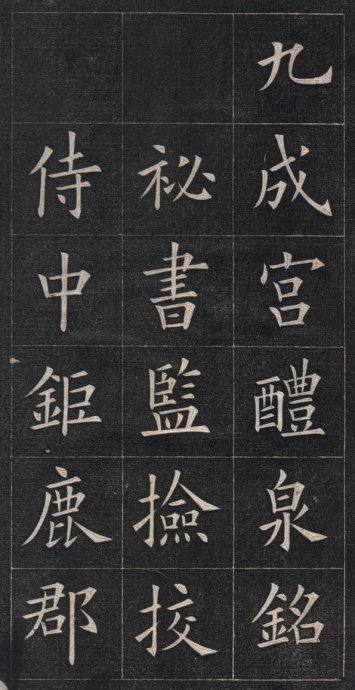 九成宮醴泉銘
祕書監撿挍
侍中鉅鹿郡